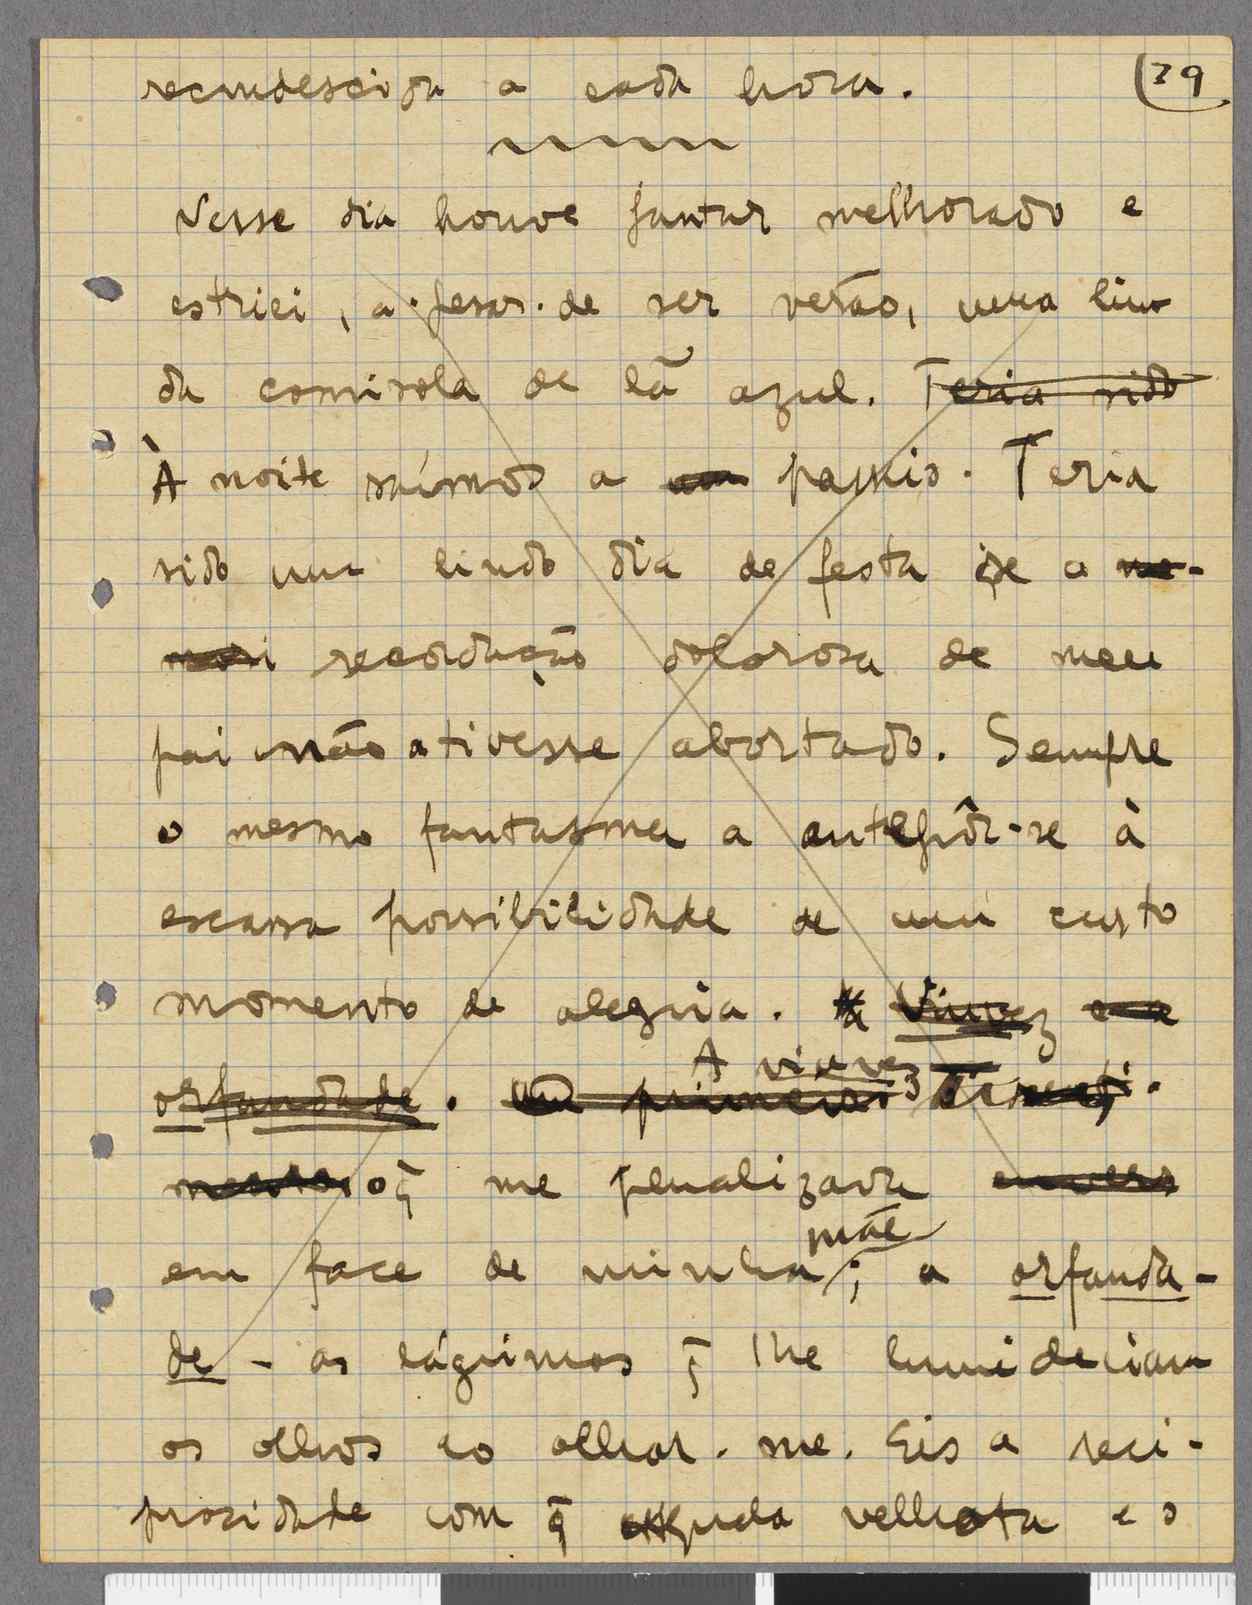 recrudescida a cada hora. 39
Nesse dia houve jantar melhorado e
estriei, a-pesar-de ser verão, uma lin-
da camisola de lã azul. Teria sido
À noite saímos a um passeio. Teria
sido um lindo dia de festa se a me-
mori recordação dolorosa de meu
pai não a tivesse abortado. Sempre
o mesmo fantasma a antepôr-se à
escassa possibilidade de um curto
momento de alegria. A Viuvez e a
orfandade. Um primeiro A viuvez
o q̃ me penalizava
em face de minha mãe; a orfanda-
de - as lágrimas q̃ lhe humideciam
os olhos ao olhar-me. Eis a reci-
procidade com q̃ aquela velhota e o